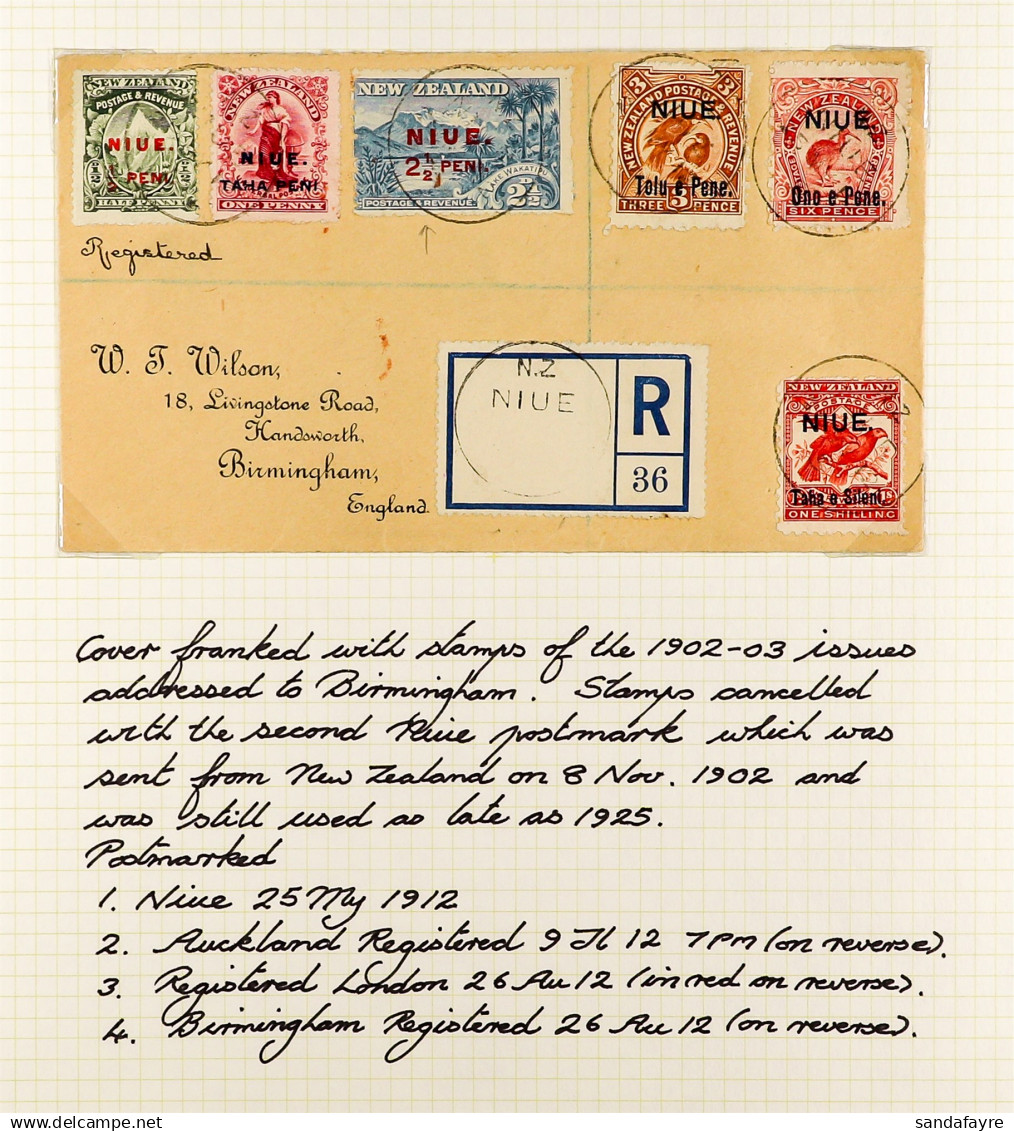 NEW ZEALAND
POSTAGE & REVENUE
NIUE.
½ PENI.
HALF PENNY
NEW ZEALAND
NIUE.
TAHA PENI
ONE PENNY
NEW ZEALAND
NIUE.
2½ PENI.
LAKE WAKATIPU
POSTAGE & REVENUE
2½
3 3
NEW ZEALAND POSTAGE & REVENUE
NIUE.
Tolu e Pene.
THREE 3 PENCE
NEW ZEALAND
NIUE.
Ono e Pene.
SIX PENCE
Registered
W. T. Wilson,
18, Livingstone Road,
Handsworth,
Birmingham,
England.
N.Z
NIUE
R
36
NEW ZEALAND
POSTAGE
NIUE.
Taha e Sileni.
ONE SHILLING
Cover franked with stamps of the 1902-03 issues
addressed to Birmingham. Stamps cancelled
with the second Niue postmark which was
sent from New Zealand on 8 Nov. 1902 and
was still used as late as 1925.
Postmarked
1. Niue 25 My 1912
2. Auckland Registered 9 Jl 12 7pm (on reverse).
3. Registered London 26 Au 12 (in red on reverse).
4. Birmingham Registered 26 Au 12 (on reverse).
sandafayre